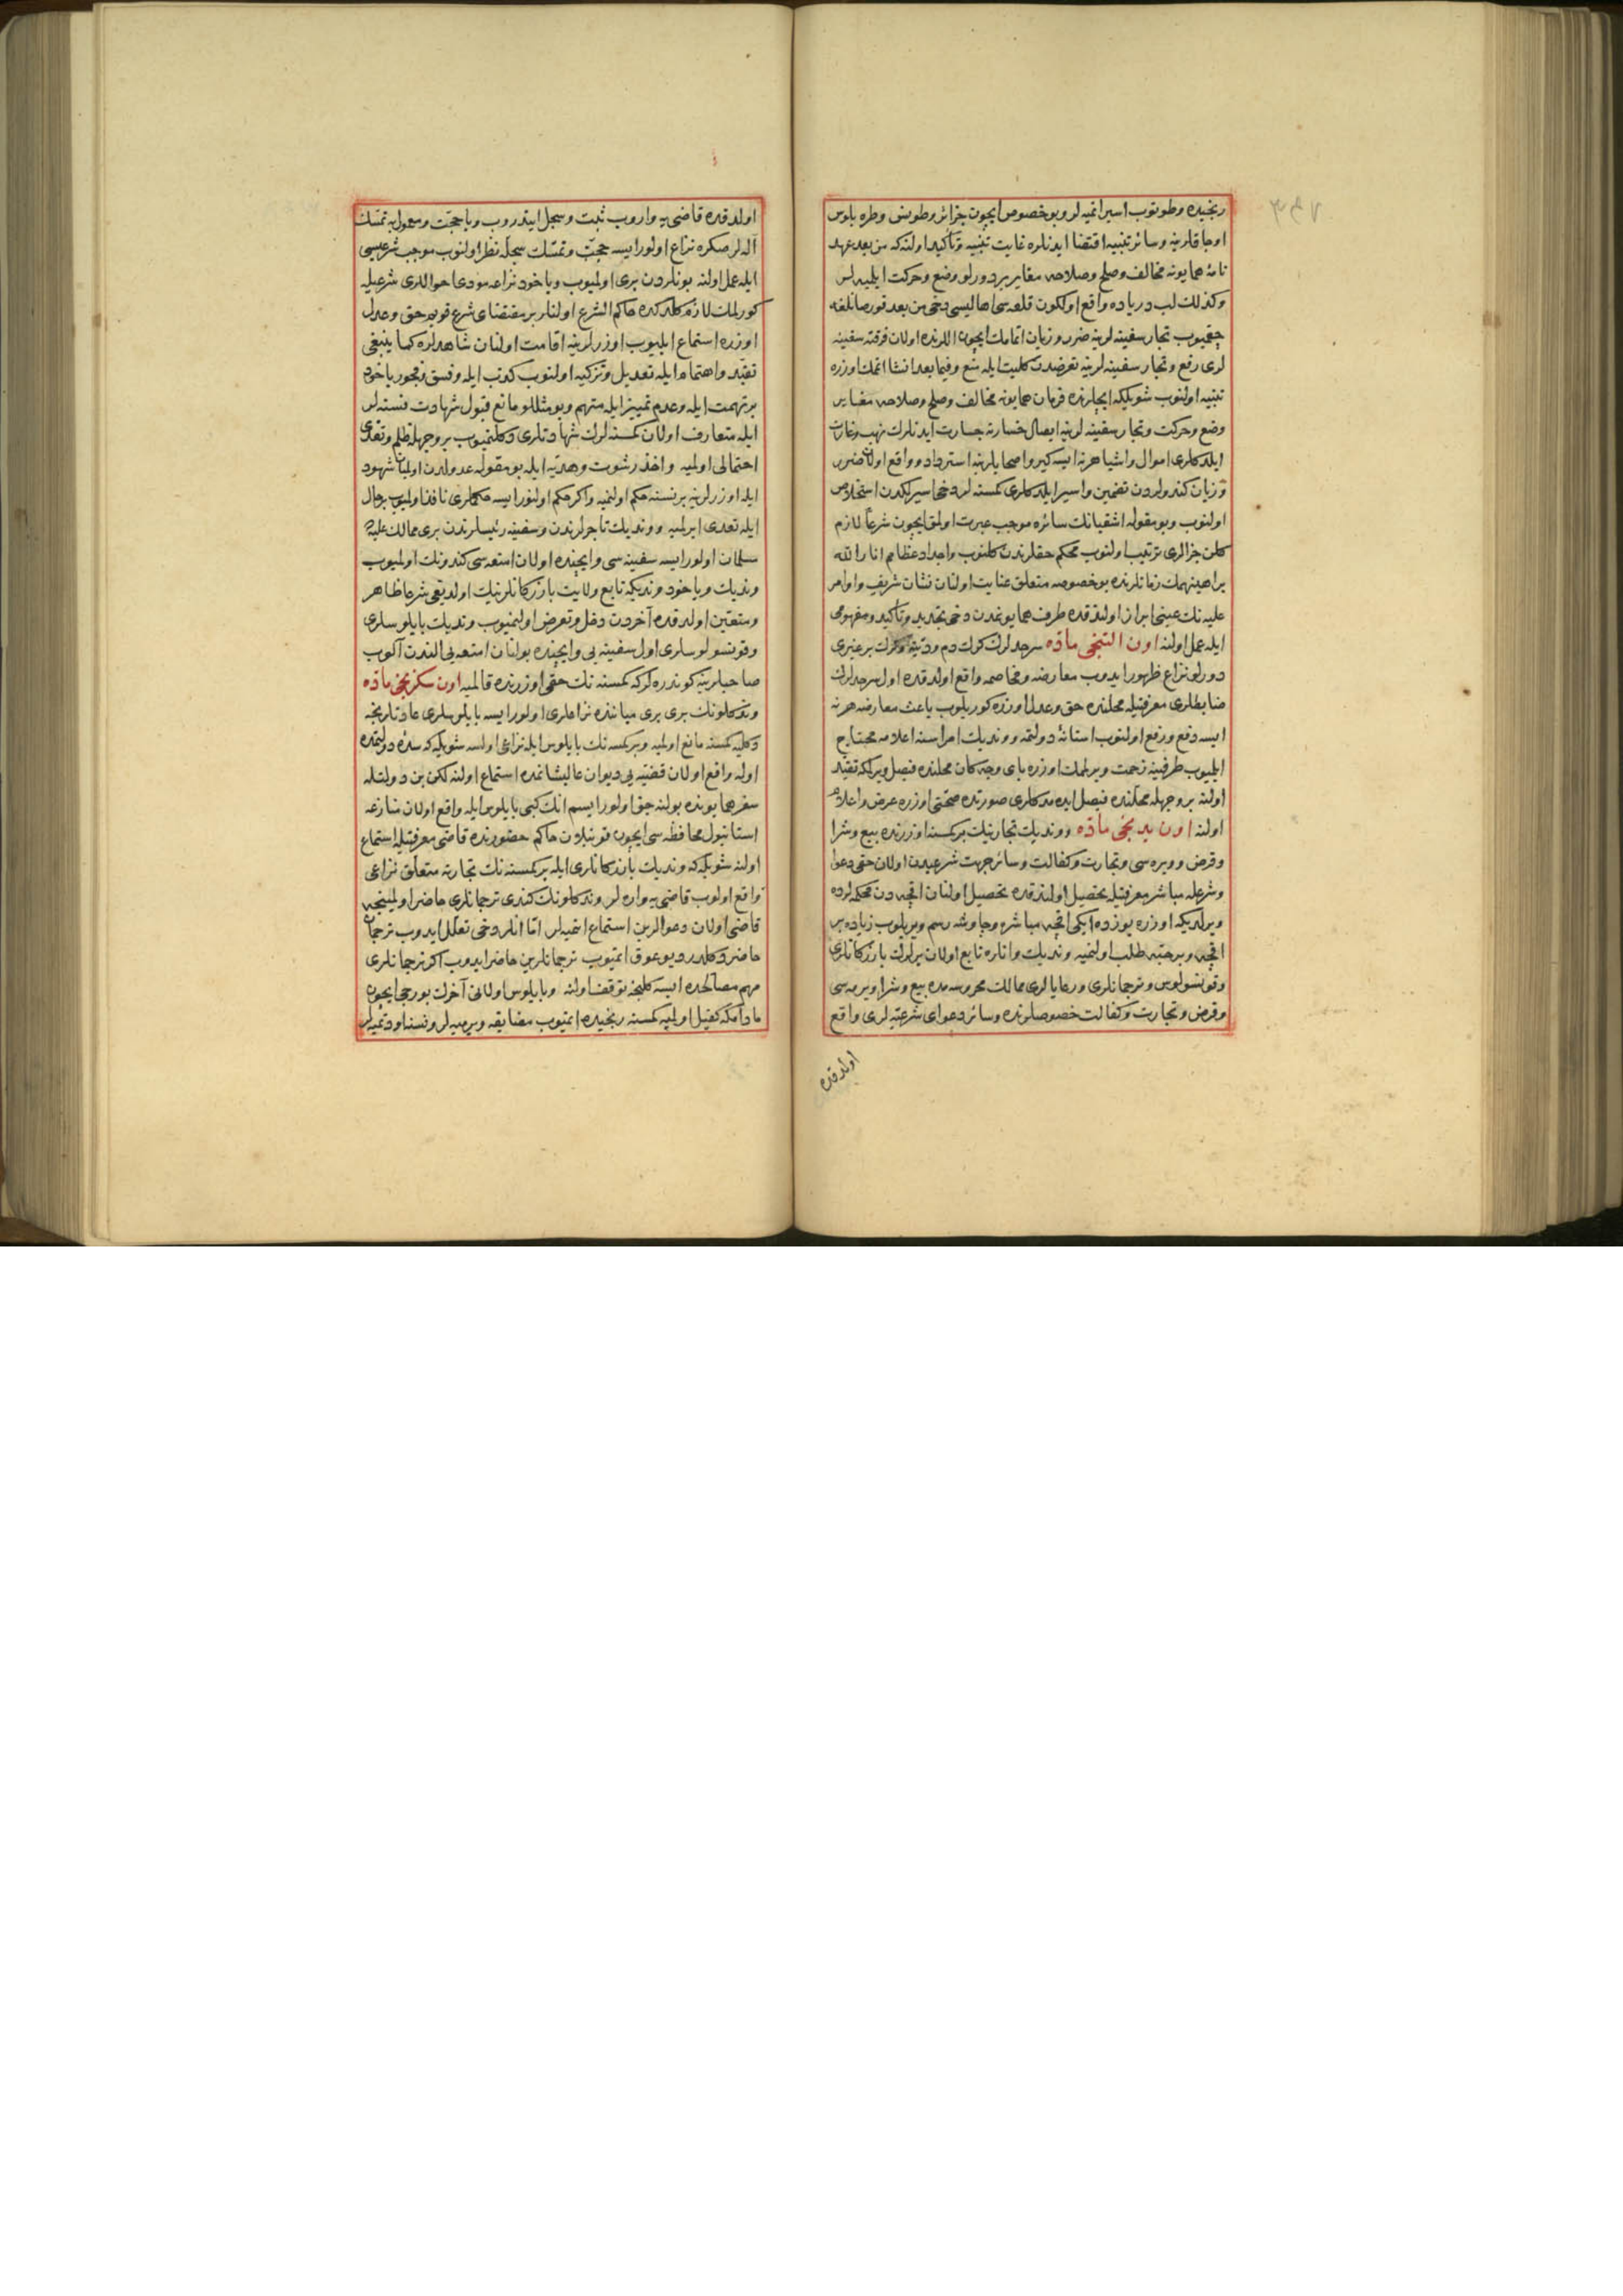 رنجیده و طوتوب اسیر اتمیه لر و بو خصوص ایچون جزائر و طونس و طره بلوس
اوجاقلرینه و سائر تنبیه اقتضا ایدنلره غایت تنبیه و تأکید اولنه که من بعد عهد
نامۀ همایونه مخالف و صلح و صلاحه مغایر بر دورلو وضع و حرکت ایلمیه لر
و کذلك لب دریاده واقع اولکون قلعه سی اهالیسی دخی من بعد قورصانلغه
چقمیوب تجار سفینه لرینه ضرر و زیان اتمامك ایچون اللرنده اولان فرقته سفینه
لری رفع و تجار سفینه لرینه تعرضدن کلیت ایله منع و فیما بعد انشا اتمك اوزره
تنبیه اولنوب شویلکه ایچلرنده فرمان همایونه مخالف و صلح و صلاحه مغایر
وضع و حرکت و تجار سفینه لرینه ایصال خسارته جسارت ایدنلرك نهب و غارت
ایلدکلری اموال و اشیا هر نه ایسه کیرو اصحابلرینه استرداد و واقع اولان ضرر
و زیان کندولردن تضمین و اسیر ایلدکلری کمسنه لر دخی اسیرلکدن استخلاص
اولنوب و بو مقوله اشقیانك سائره موجب عبرت اولمق ایچون شرعاً لازم
کلن جزالری ترتیب اولنوب محکم حقلرندن کلنوب و اجداد عظامم انار الله
براهینهمك زمانلرنده بو خصوصه متعلق عنایت اولنان نشان شریف و اوامر
علیه نك عینی ابراز اولندقده طرف همایونمدن دخی تجدید و تأکید و مفهومی
ایله عمل اولنه اون التنجی ماده سرحدلرك كرك دم و دیت و كرك بر غیری
دورلو نزاع ظهور ایدوب معارضه و مخاصمه واقع اولدقده اول سرحدلرك
ضابطلری معرفتیله محلنده حق و عدل اوزره کوریلوب باعث معارضه هر نه
ایسه دفع و رفع اولنوب استانۀ دولتمه و وندیك امراسنه اعلامه محتاج
ایلمیوب طرفینه زحمت ویرلمامك اوزره بای وجه کان محلنده فیصل ویرلمکه تقید
اولنه بر وجهله محلنده فیصل ایده مدکلری صورتده صحتی اوزره عرض و اعلام
اولنه اون یدنجی ماده و وندیك تجارینك بر کمسنه اوزرنده بیع و شرا
و قرض و ویره سی و تجارت و کفالت و سائر جهت شرعیدن اولان حقی دعوا
و شرعله مباشر معرفتیله تحصیل اولندقده تحصیل اولنان اقچه دن محکمه لرده
ویرلدیکه اوزره یوزده ایکی اقچه مباشره و جاوشه رسم ویریلوب زیاده بر
اقچه و بر حبه طلب اولنمیه وندیك و انلره تابع اولان یرلرك بازرکانلری
و قونسولوس و ترجمانلری و رعایالری ممالك محروسه مده بیع و شرا و ویره سی
و قرض و تجارت و کفالت خصوصلرنده و سائر دعوای شرعیه لری واقع
اولدقده
اولدقده قاضی یه واروب ثبت و سجل ایتدروب و یا حجت و معمول به تمسك
آله لر صکره نزاع اولورایسه حجت و تمسك سجله نظر اولنوب موجب شرعیسی
ایله عمل اولنه بونلردن بری اولمیوب و یاخود نزاعه مودی احواللری شرعیله
کورلمك لازم کلدکده حاکم الشرع اولنلر بر مقتضای شرع قویم حق و عدل
اوزره استماع ایلیوب اوزرلرینه اقامت اولنان شاهدلره کما ینبغی
تقید و اهتمام ایله تعدیل و تزکیه اولنوب کذب ایله و فسق و فجور یاخود
بر تهمت ایله و عدم تمییز ایله متهم و بو مثللو مانع قبول شهادت نسنه لر
ایله متعارف اولان کمسنه لرك شهادتلری دکلنمیوب بر وجهله ظلم و تعدی
احتمالی اولمیه و اخذ رشوت و هدیه ایله بو مقوله عدولدن اولمیان شهود
ایله اوزرلرینه بر نسنه حکم اولنمیه و اکر حکم اولنورایسه حکملری نافذ اولمیوب بر حال
ایله تعدی ایرلمیه و وندیك تاجرلرندن و سفینه رئیسلرندن بری ممالك علیه
سلمان اولورایسه سفینه سی و ایچنده اولان امتعه سی کندونك اولمیوب
وندیك و یاخود وندیکه تابع ولایت بازرکانلرینك اولدیغی شرعا ظاهر
و متعین اولدقده آخردن دخل و تعرض اولنمیوب وندیك بایلوسلری
و قونسولوسلری اول سفینه یی و ایچنده بولنان امتعه یی الندن آلوب
صاحبلرینه کوندره لر که کمسنه نك حقی اوزرنده قالمیه اون سکزنجی ماده
وندکلونك بری بری میاننده نزاعلری اولورایسه بایلوسلری عادتلرنجه
دکلیه کمسنه مانع اولمیه و بر کمسنه نك بایلوس ایله نزاعی اولسه شویلکه سدۀ دولتمده
اوله واقع اولان قضیه یی دیوان عالیشانمده استماع اولنه لکن بن دولتله
سفر همایونده بولنه جق اولورایسم انك کبی بایلوس ایله واقع اولان منازعه
استانبول محافظه سی ایچون قونیلان حاکم حضورنده قاضی معرفتیله استماع
اولنه شویلکه وندیك بازرکانلری ایله بر کمسنه نك تجارته متعلق نزاعی
واقع اولوب قاضی یه واره لر وندکلونك کندی ترجمانلری حاضر اولمینجه
قاضی اولان دعوالرین استماع اتمیه لر اما انلر دخی تعلل ایدوب ترجمان
حاضر دکلدر دیو عوق اتمیوب ترجمانلرین حاضر ایدوب اکر ترجمانلری
مهم مصالحده ایسه کلنجه توقف اولنه و بایلوس اولانی آخرك بورجی ایچون
مادامکه کفیل اولمیه کمسنه رنجیده اتمیوب مضایقه ویرمیه لر و نسنا و دتمیه لر